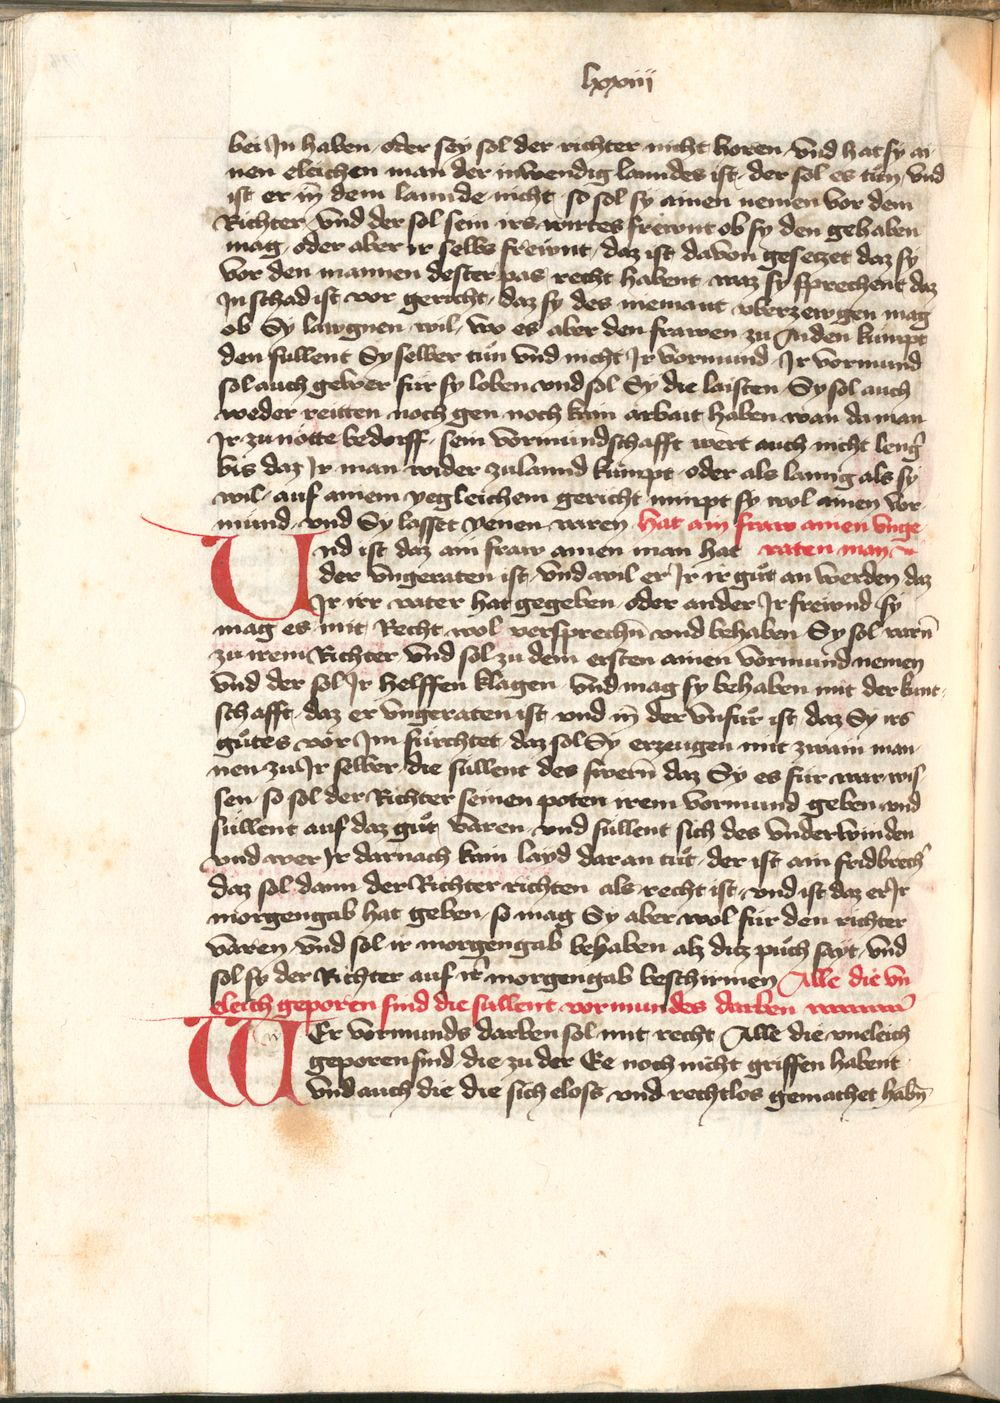 lxxiiij
bei Jn haben oder sey sol der richter nicht horen vnd hat sy ai
nen eleichen man der inwendig lanndes ist der sol es tůn vnd
ist er in dem lannde nicht so sol sy ainen nemen vor dem
Richter vnd der sol sein irs wirtes frewnt ob sy den gehaben
mag oder aber ir selbs frewnt daz ist davon gesetzet daz sy
vor den mannen dester pas recht habent waz sy sprechent daz
Jn schad ist vor gericht daz sy des niemant vberzewgen mag
ob Sy lawgnen wil wo es aber den frawen zu Aiden kumpt
den sullent Sy selber tůn vnd nicht Jr vormund Jr vormund
sol auch gewer fur sy loben vnd sol Sy die laisten Sy sol auch
weder reitten noch gen noch kain arbait haben wan da man
Jr zu notte bedorff sein vormundschafft wert auch nicht leng
bis daz Jr man wider zu lannd kumpt oder als lanng als sy
wil auf ainem yegleichem gericht nimpt sy wol ainen vor
mund vnd Sy lasset yenen varen hat ain fraw ainen vnge
Und ist daz ain fraw ainen man hat raten man
der vngeraten ist vnd wil er Jr ir gůt an werden daz
Jr irr vater hat gegeben oder ander Jr frewnd sy
mag es mit Recht wol versprechn̄ vnd behaben Sy sol varn̄
zu irem Richter vnd sol zu dem ersten ainen vormund nemen
vnd der sol Jr helffen klagen vnd mag sy behaben mit der kunt
schafft daz er vngeraten ist vnd in der vnfůr ist daz Sy irs
gůtes vor Jm furchtet daz sol Sy erzeugen mit zwain man
nen zu Jr selber die sullent des swern̄ daz Sy es fur war wis
sen so sol der Richter seinen poten irem vormund geben vnd
sullent auf daz gůt varen vnd sullent sich des vnderwinden
vnd wer Jr darnach kain layd dar an tůt der ist ain fridbrech
daz sol dann der Richter richten als recht ist vnd ist daz er Jr
morgengab hat geben so mag Sy aber wol fur den richter
varen vnd sol ir morgengab behaben alz ditz půch sayt vnd
sol sy der Richter auf ir morgengab beschirmen Alle die vn
eleich geporen sind die sullent vormundes darben
WEr vormunds darben sol mit recht Alle die vneleich
geporen sind die zu der Ee noch nicht griffen habent
vnd auch die die sich eloss vnd rechtlos gemachet habn̄